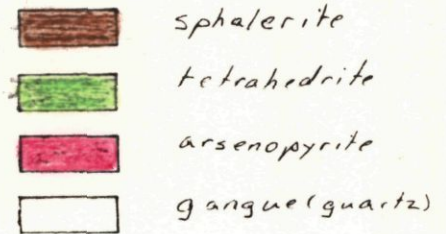 sphalerite
tetrahedrite
arsenopyrite
gangue (quartz)